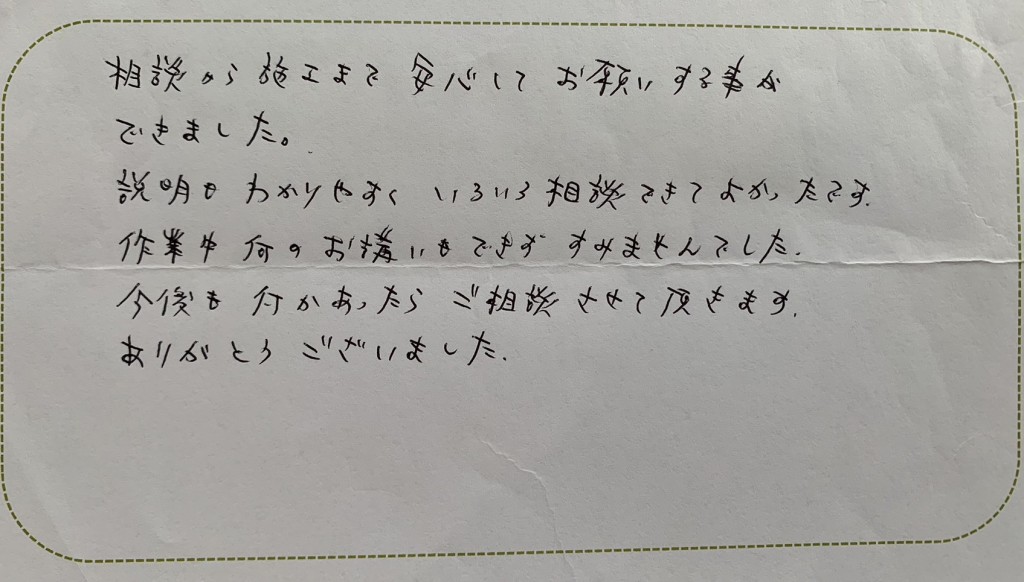 相談から施工まで 安心して お願いする事が
できました。
説明も わかりやすく いろいろ相談できてよかったです.
作業中 何のお構いもできず すみませんでした.
今後も 何かあったら ご相談させて頂きます.
ありがとうございました.